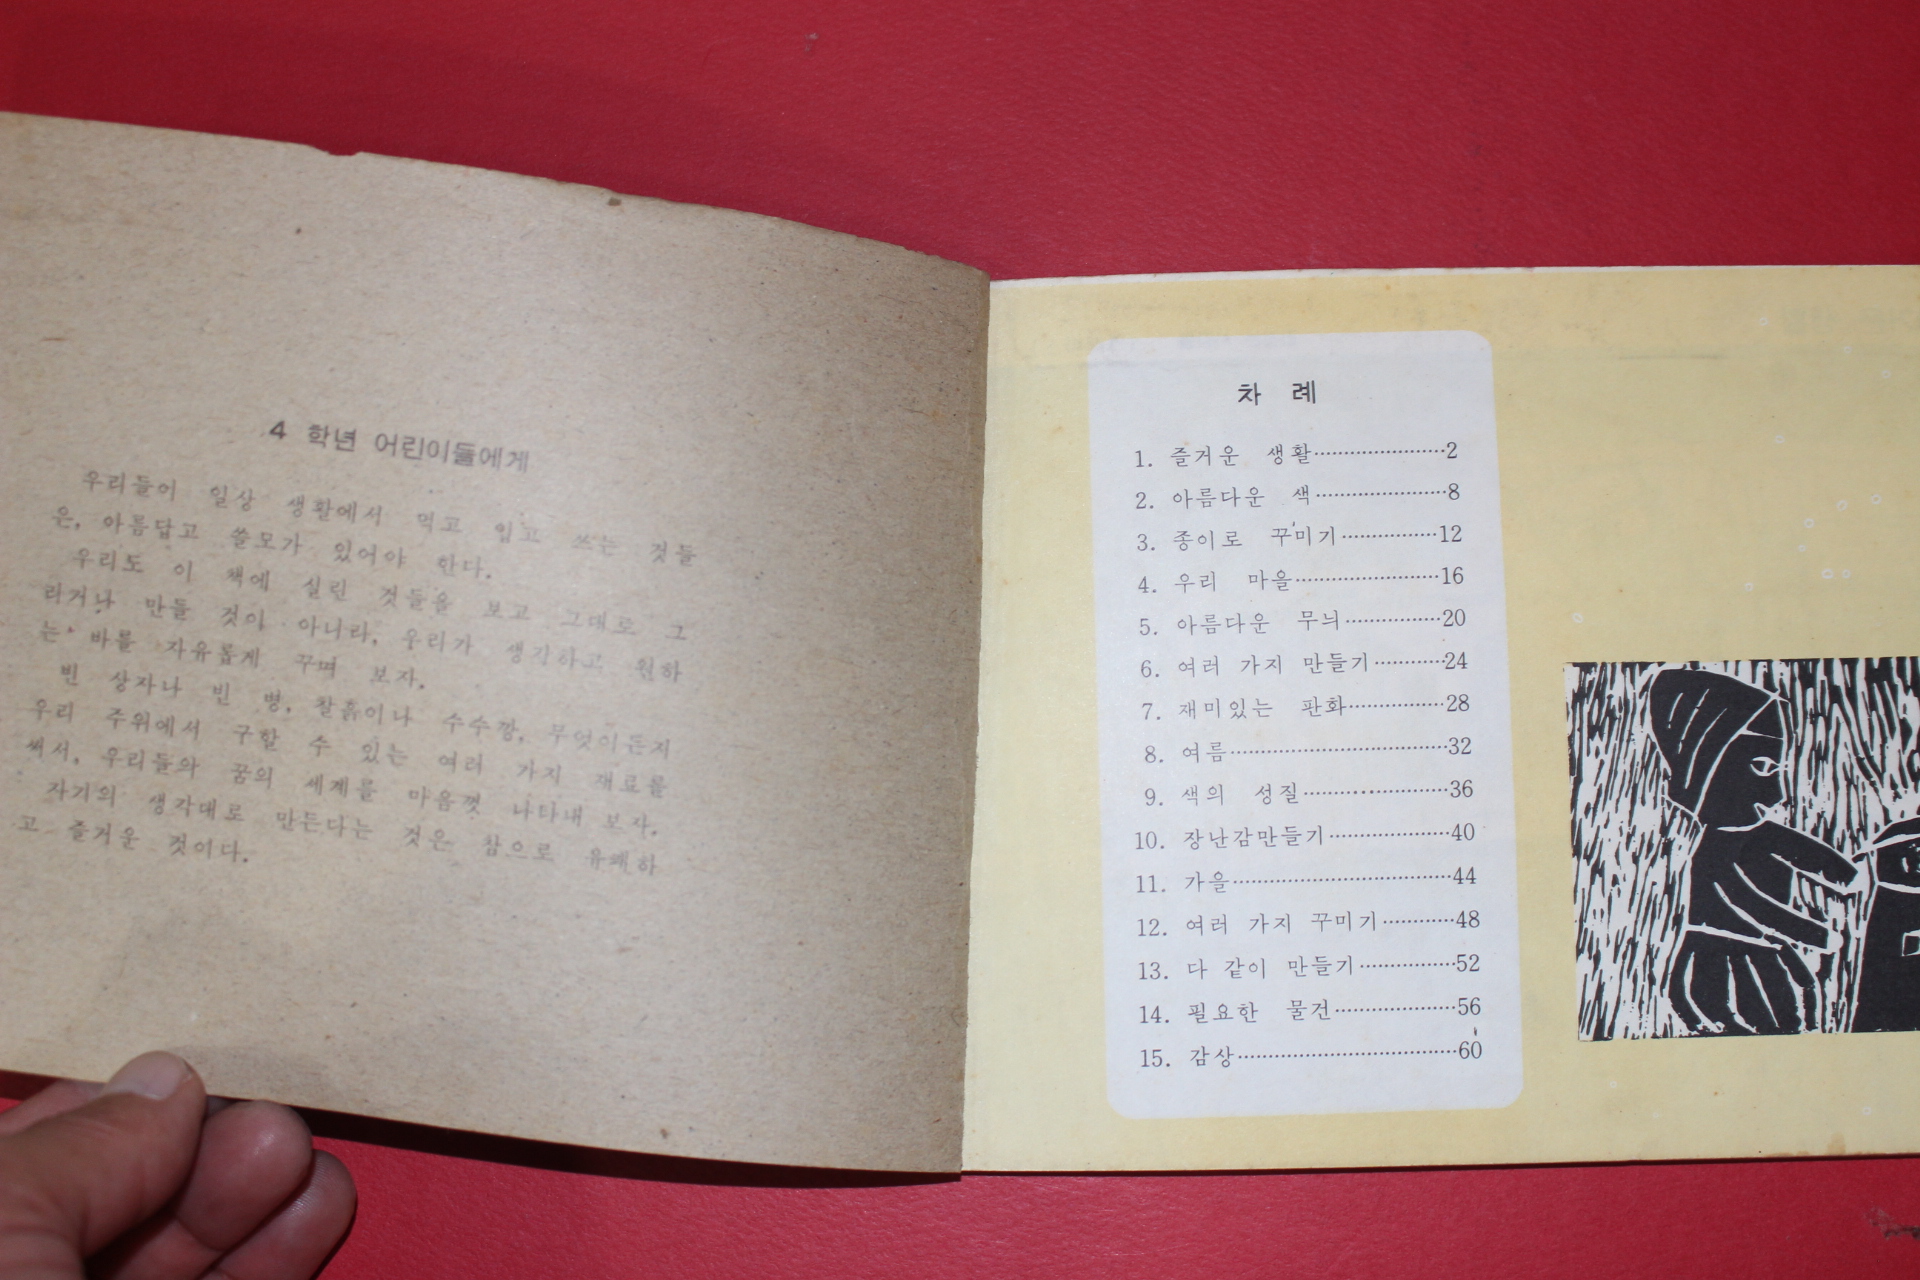 4 학년 어린이들에게
우리들이 일상 생활에서 먹고 입고 쓰는 것들
은, 아름답고 쓸모가 있어야 한다.
우리도 이 책에 실린 것들을 보고 그대로 그
리거나 만들 것이 아니라, 우리가 생각하고 원하
는 바를 자유롭게 꾸며 보자.
빈 상자나 빈 병, 찰흙이나 수수깡, 무엇이든지
우리 주위에서 구할 수 있는 여러 가지 재료를
써서, 우리들의 꿈의 세계를 마음껏 나타내 보자.
자기의 생각대로 만든다는 것은 참으로 유쾌하
고 즐거운 것이다.
차 례
1. 즐거운 생활……………………2
2. 아름다운 색……………………8
3. 종이로 꾸미기………………12
4. 우리 마을………………………16
5. 아름다운 무늬………………20
6. 여러 가지 만들기…………24
7. 재미있는 판화………………28
8. 여름………………………………32
9. 색의 성질………………………36
10. 장난감만들기…………………40
11. 가을………………………………44
12. 여러 가지 꾸미기…………48
13. 다 같이 만들기………………52
14. 필요한 물건……………………56
15. 감상………………………………60